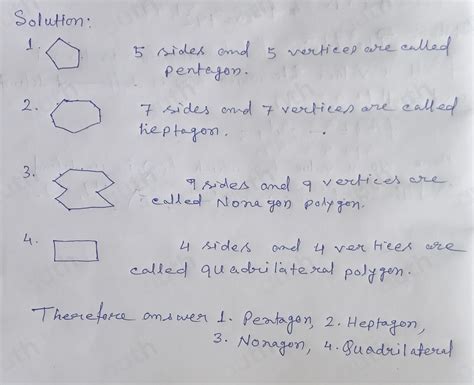 Solution:
1. 5 sides and 5 vertices are called
pentagon.
2. 7 sides and 7 vertices are called
heptagon.
3. 9 sides and 9 vertices are
called Nonagon polygon.
4. 4 sides and 4 vertices are
called quadrilateral polygon.
Therefore answer 1. Pentagon, 2. Heptagon,
3. Nonagon, 4. Quadrilateral